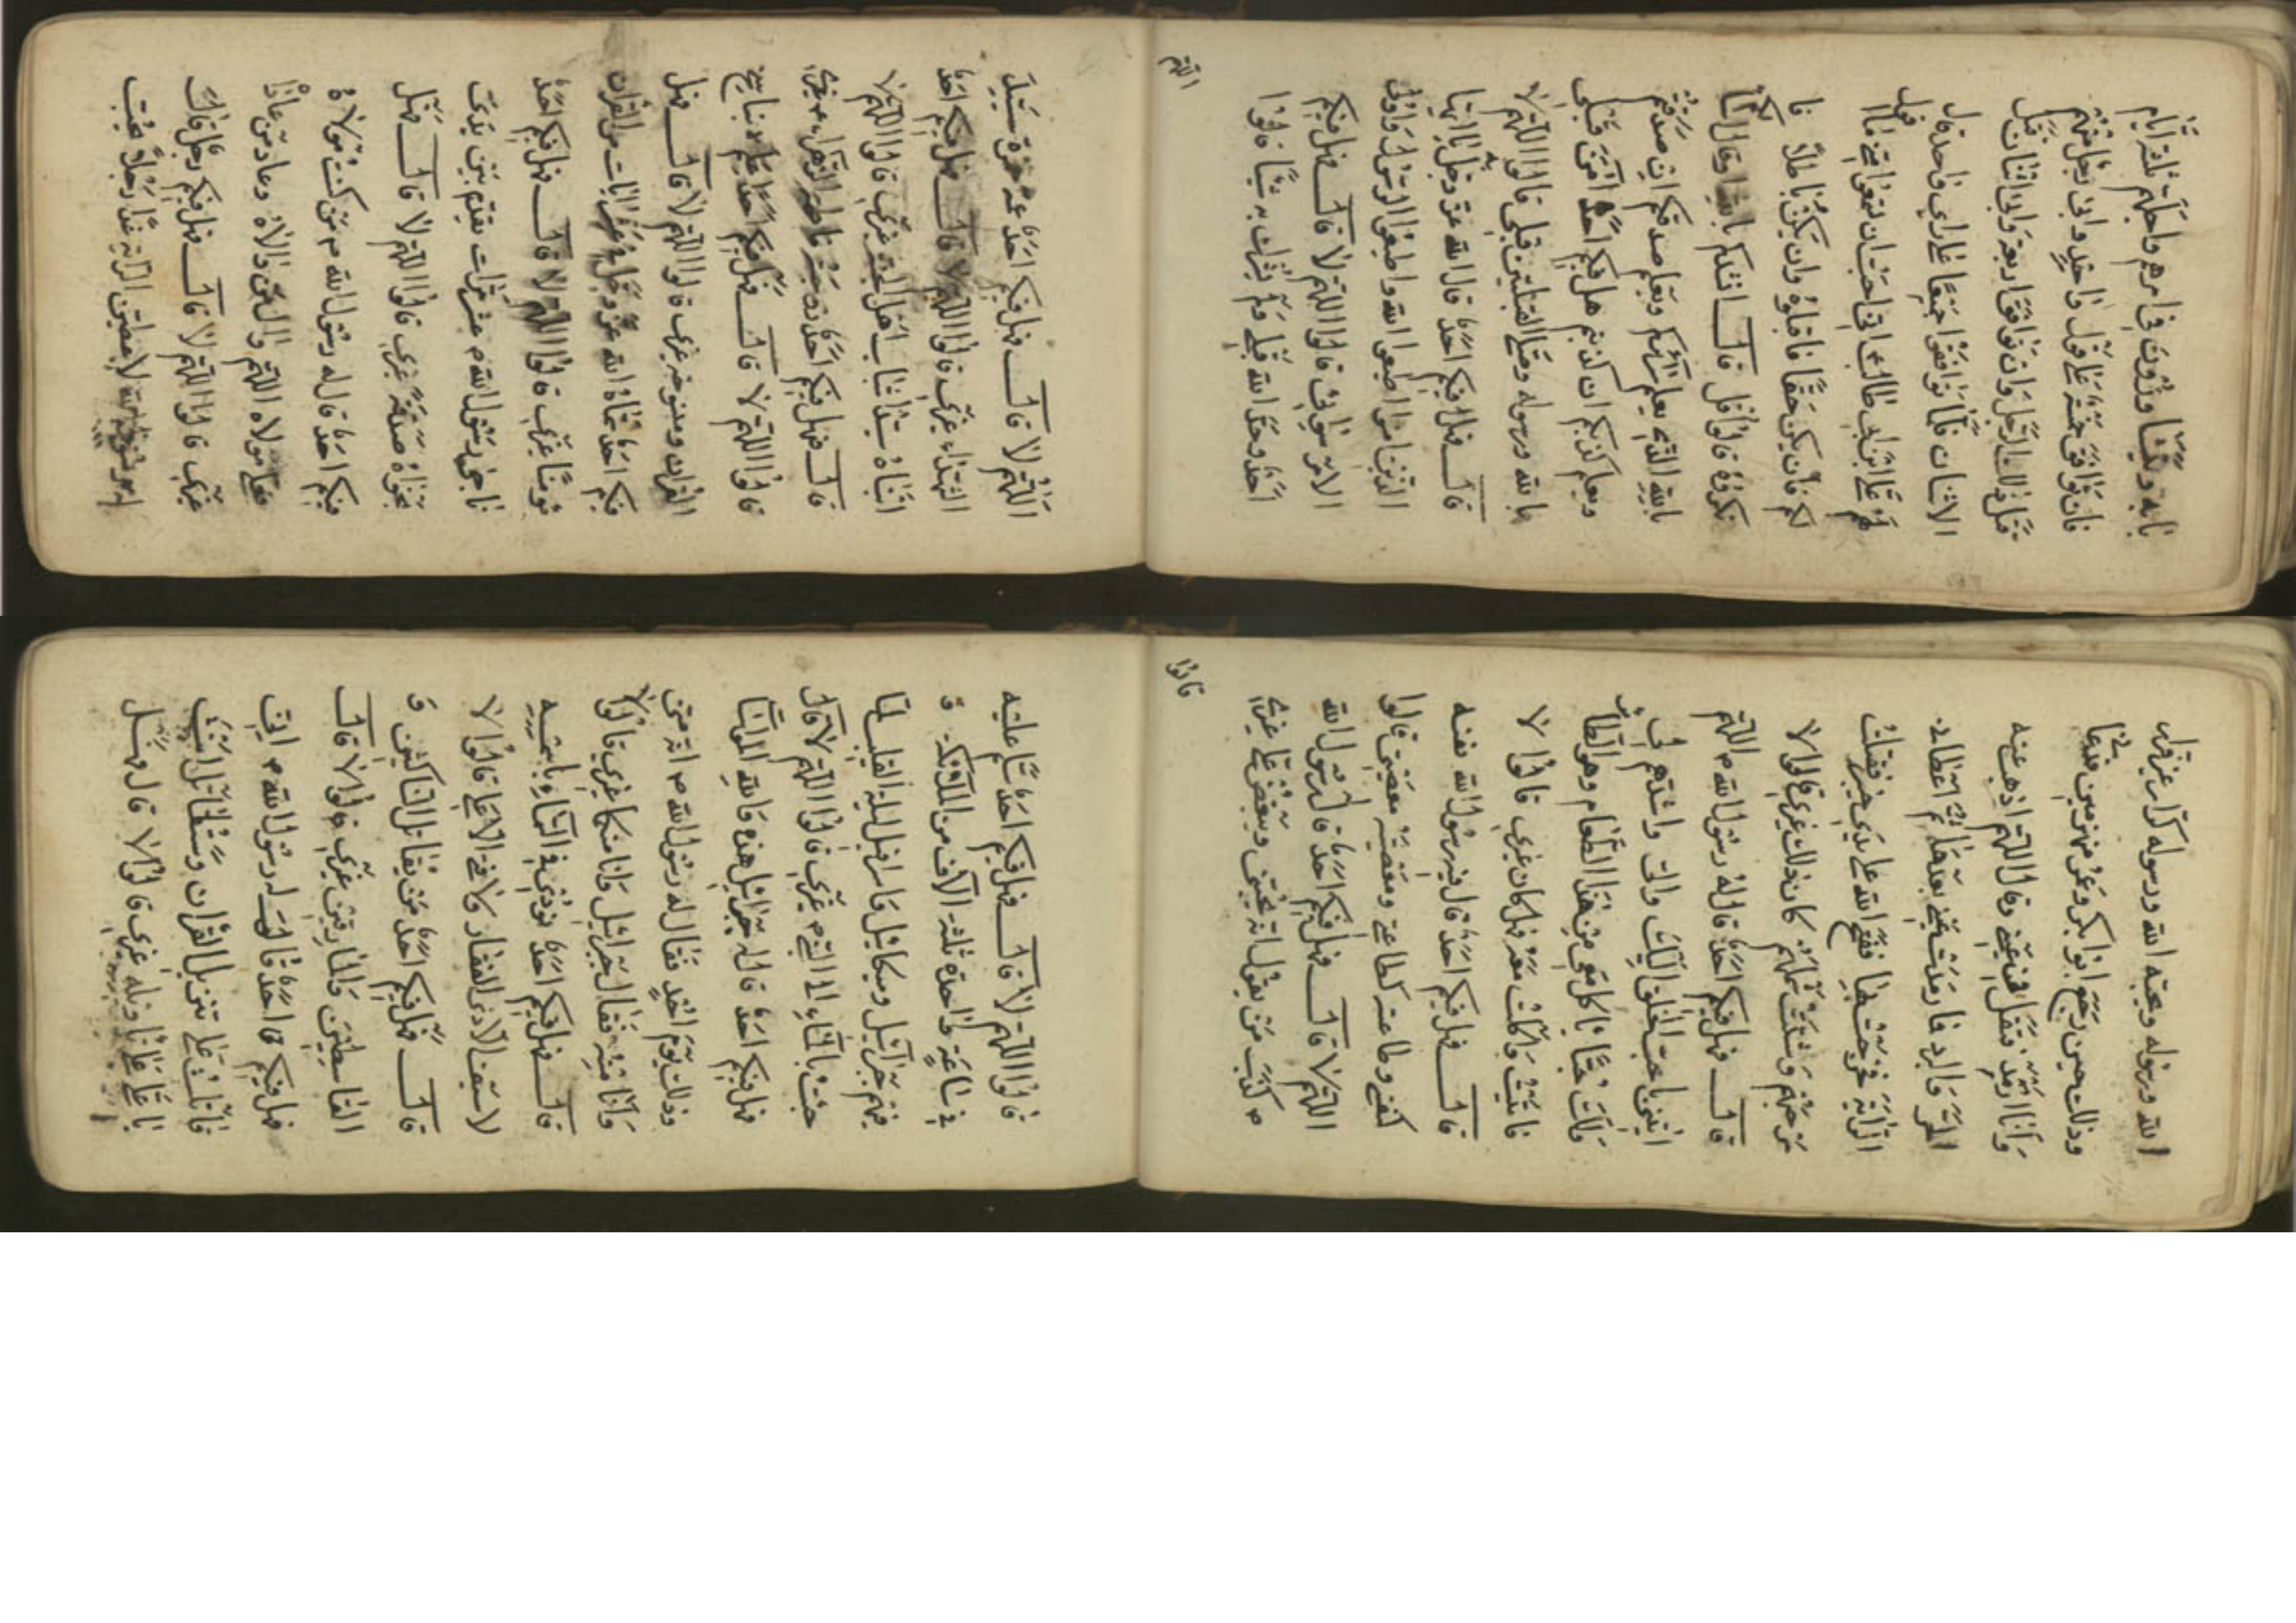 بابه ويتشاورون في امرهم واجلهم ثلثة ايام
فان توافق خمسة على قول واحد وابى رجل منهم
قتل ذلك الرجل وان توافق اربعة وابى اثنان قتل
الاثنان فلما توافقوا جميعا على راي واحد قال
لهم علي بن ابي طالب اني احب ان تسمعوا مني ما اقول
لكم فان يكن حقا فاقبلوه وان يكن باطلا فا
نكروه قالوا قل قال انشدكم بالله او قال اسالكم
بالله الذي يعلم سرائركم ويعلم صدقكم ان صدقتم
ويعلم كذبكم ان كذبتم هل فيكم احد امن قبلي
بالله ورسوله وصلى القبلتين قبلي قالوا اللهم لا
قال فهل فيكم احد قال الله عز وجل يا ايها
الذين امنوا اطيعوا الله واطيعوا الرسول واولي
الامر سواي قالوا اللهم لا قال فهل فيكم
احد وحد الله قبلي ولم يشرك به شيئا قالوا
اللهم
اللهم لا قال فهل فيكم احد عمه حمزة سيد
الشهداء غيري قالوا اللهم لا قال فهل فيكم احد
ابناه سيدا شباب اهل الجنة غيري قالوا اللهم لا
قال فهل فيكم احد
قالوا اللهم لا قال فهل فيكم احد اعلم بناسخ
القران ومنسوخه غيري قالوا اللهم لا قال فهل
فيكم احد سماه الله عز وجل في عشر ايات من القران
مومنا غيري قالوا اللهم لا قال فهل فيكم احد
ناجى رسول الله عشر مرات يقدم بين يدي
نجواه صدقة غيري قالوا اللهم لا قال فهل
فيكم احد قال له رسول الله من كنت مولاه
فعلي مولاه اللهم وال من والاه وعاد من عاداه
غيري قالوا اللهم لا قال فهل فيكم رجل قال
رسول الله لاعطين الراية غدا رجلا يحب
الله ورسوله ويحبه الله ورسوله كرار غير فرار
وذلك حين رجع ابو بكر وعمر منهزمين فدعاني
وانا ارمد فتفل في عيني وقال اللهم اذهب عنه
الحر والبرد فما رمدت عيني بعدها ثم اعطاني
الراية فخرجت بها ففتح الله على يدي خيبر فقتلت
مرحبهم وشتت شملهم كان ذلك غيري قالوا لا
قال فهل فيكم احد قال له رسول الله اللهم
ايتني باحب الخلق اليك والي واشدهم لي
ولك حبا ياكل معي من هذا الطعام وهو الطاير
فاتيت واكلت معه فهل كان غيري قالوا لا
قال فهل فيكم احد قال فيه رسول الله نفسه
كنفسي وطاعته كطاعتي ومعصيته معصيتي قالوا
اللهم لا قال فهل فيكم احد قال رسول الله
كذب من يقول انه يحبني ويبغض علي غيري
قالوا
قالوا اللهم لا قال فهل فيكم احد سلم عليه
في ساعة واحدة ثلثة الاف من الملايكة و
فيهم جبرائيل وميكائيل واسرافيل ليلة القليب لما
جئت بالماء الى النبي غيري قالوا اللهم لا قال
فهل فيكم احد قال له جبرائيل هذه والله المواساة
وذلك يوم احد فقال له رسول الله انه مني
وانا منه فقال جبرائيل وانا منكما غيري قالوا لا
قال فهل فيكم احد نودي في السماء باسمه
لا سيف الا ذو الفقار ولا فتى الا علي قالوا لا
قال فهل فيكم احد من يقاتل الناكثين و
القاسطين والمارقين غيري قالوا لا قال
فهل فيكم احد قال له رسول الله اني
قاتلت على تنزيل القران وستقاتل انت
يا علي على تاويله غيري قالوا لا قال فهل